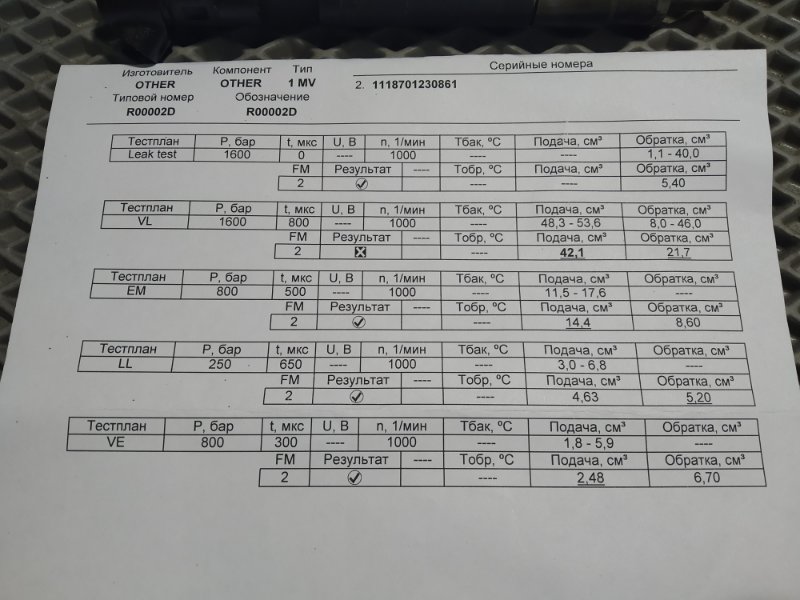 Изготовитель Компонент Тип Серийные номера
OTHER OTHER 1 MV 2. 1118701230861
Типовой номер Обозначение
R00002D R00002D
Тестплан P, бар t, мкс U, В n, 1/мин Тбак, ºС Подача, см³ Обратка, см³
Leak test 1600 0 ---- 1000 ---- ---- 1,1 - 40,0
FM Результат ---- Тобр, ºС Подача, см³ Обратка, см³
2 ---- ---- 5,40
Тестплан P, бар t, мкс U, В n, 1/мин Тбак, ºС Подача, см³ Обратка, см³
VL 1600 800 ---- 1000 ---- 48,3 - 53,6 8,0 - 46,0
FM Результат ---- Тобр, ºС Подача, см³ Обратка, см³
2 ---- 42,1 21,7
Тестплан P, бар t, мкс U, В n, 1/мин Тбак, ºС Подача, см³ Обратка, см³
EM 800 500 ---- 1000 ---- 11,5 - 17,6 ----
FM Результат ---- Тобр, ºС Подача, см³ Обратка, см³
2 ---- 14,4 8,60
Тестплан P, бар t, мкс U, В n, 1/мин Тбак, ºС Подача, см³ Обратка, см³
LL 250 650 ---- 1000 ---- 3,0 - 6,8 ----
FM Результат ---- Тобр, ºС Подача, см³ Обратка, см³
2 ---- 4,63 5,20
Тестплан P, бар t, мкс U, В n, 1/мин Тбак, ºС Подача, см³ Обратка, см³
VE 800 300 ---- 1000 ---- 1,8 - 5,9 ----
FM Результат ---- Тобр, ºС Подача, см³ Обратка, см³
2 ---- 2,48 6,70